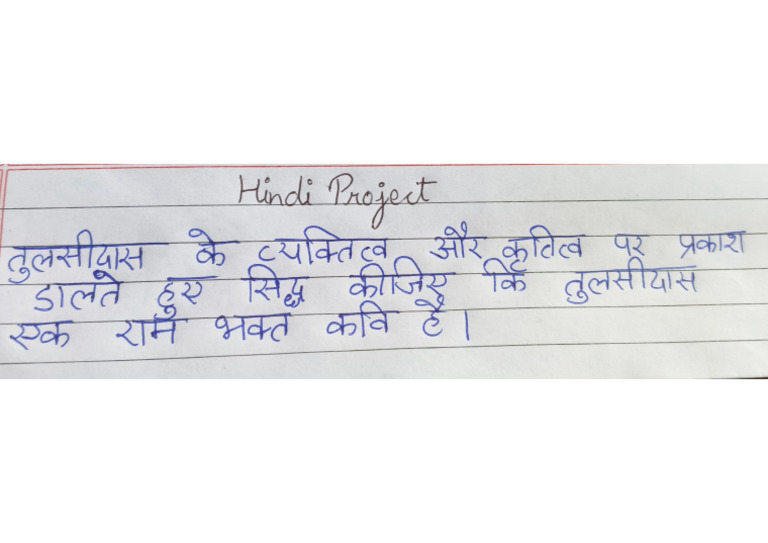 Hindi Project
तुलसीदास के व्यक्तित्व और कृतित्व पर प्रकाश
डालते हुए सिद्ध कीजिए कि तुलसीदास
एक राम भक्त कवि है।